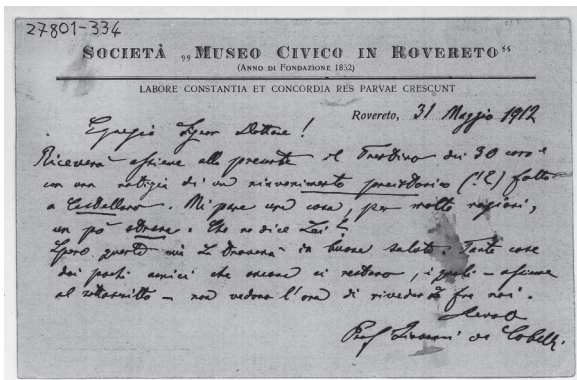 27801-334
SOCIETÀ „MUSEO CIVICO IN ROVERETO“
(ANNO DI FONDAZIONE 1852)
LABORE CONSTANTIA ET CONCORDIA RES PARVAE CRESCUNT
Rovereto, 31 Maggio 1912
Egregio Signor Dottore!
Riceverà assieme alla presente il Trentino dei 30 corr.
con una notizia di un rinvenimento preistorico (!?) fatto
a Castellano. Mi pare una cosa, per molte ragioni,
un pò strana. Che ne dice Lei?
Spero questa mia La troverà in buona salute. Tante cose
dai pochi amici che ancora ci restano, i quali – assieme
al sottoscritto – non vedono l'ora di rivederLa fra noi.
Prof. Giovanni de Cobelli.